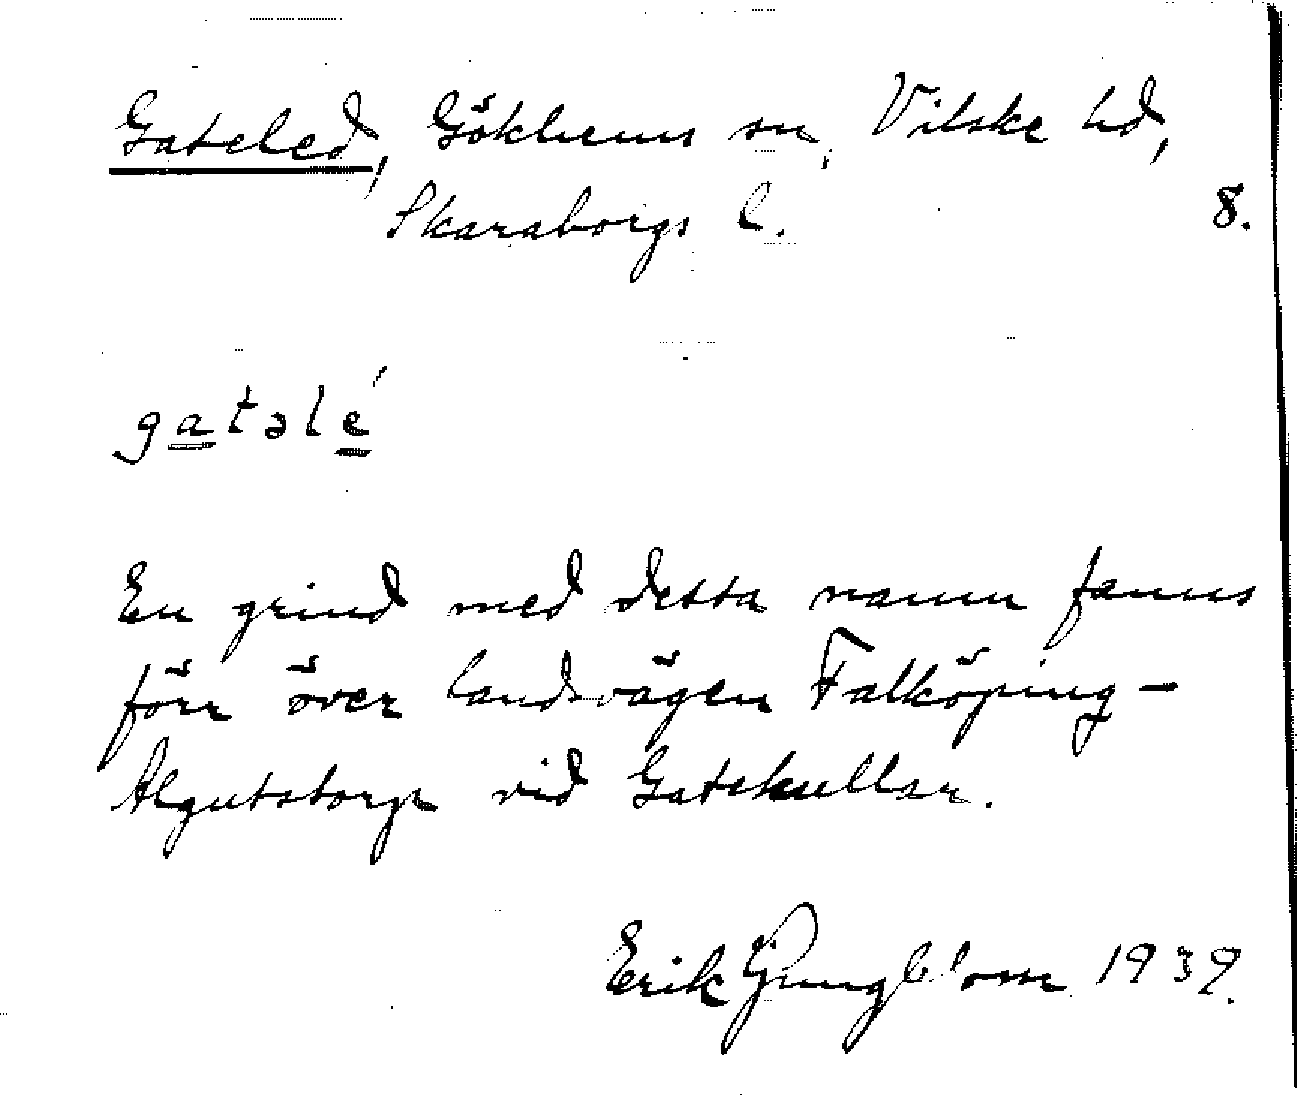 Gateled, Gökhems sn, Vilske hd,
Skaraborgs l. 8.
gatəlé
En grind med detta namn fanns
förr över landsvägen Falköping-
Ålgutstorp vid Gatekullar.
Erik Ljungblom 1939.